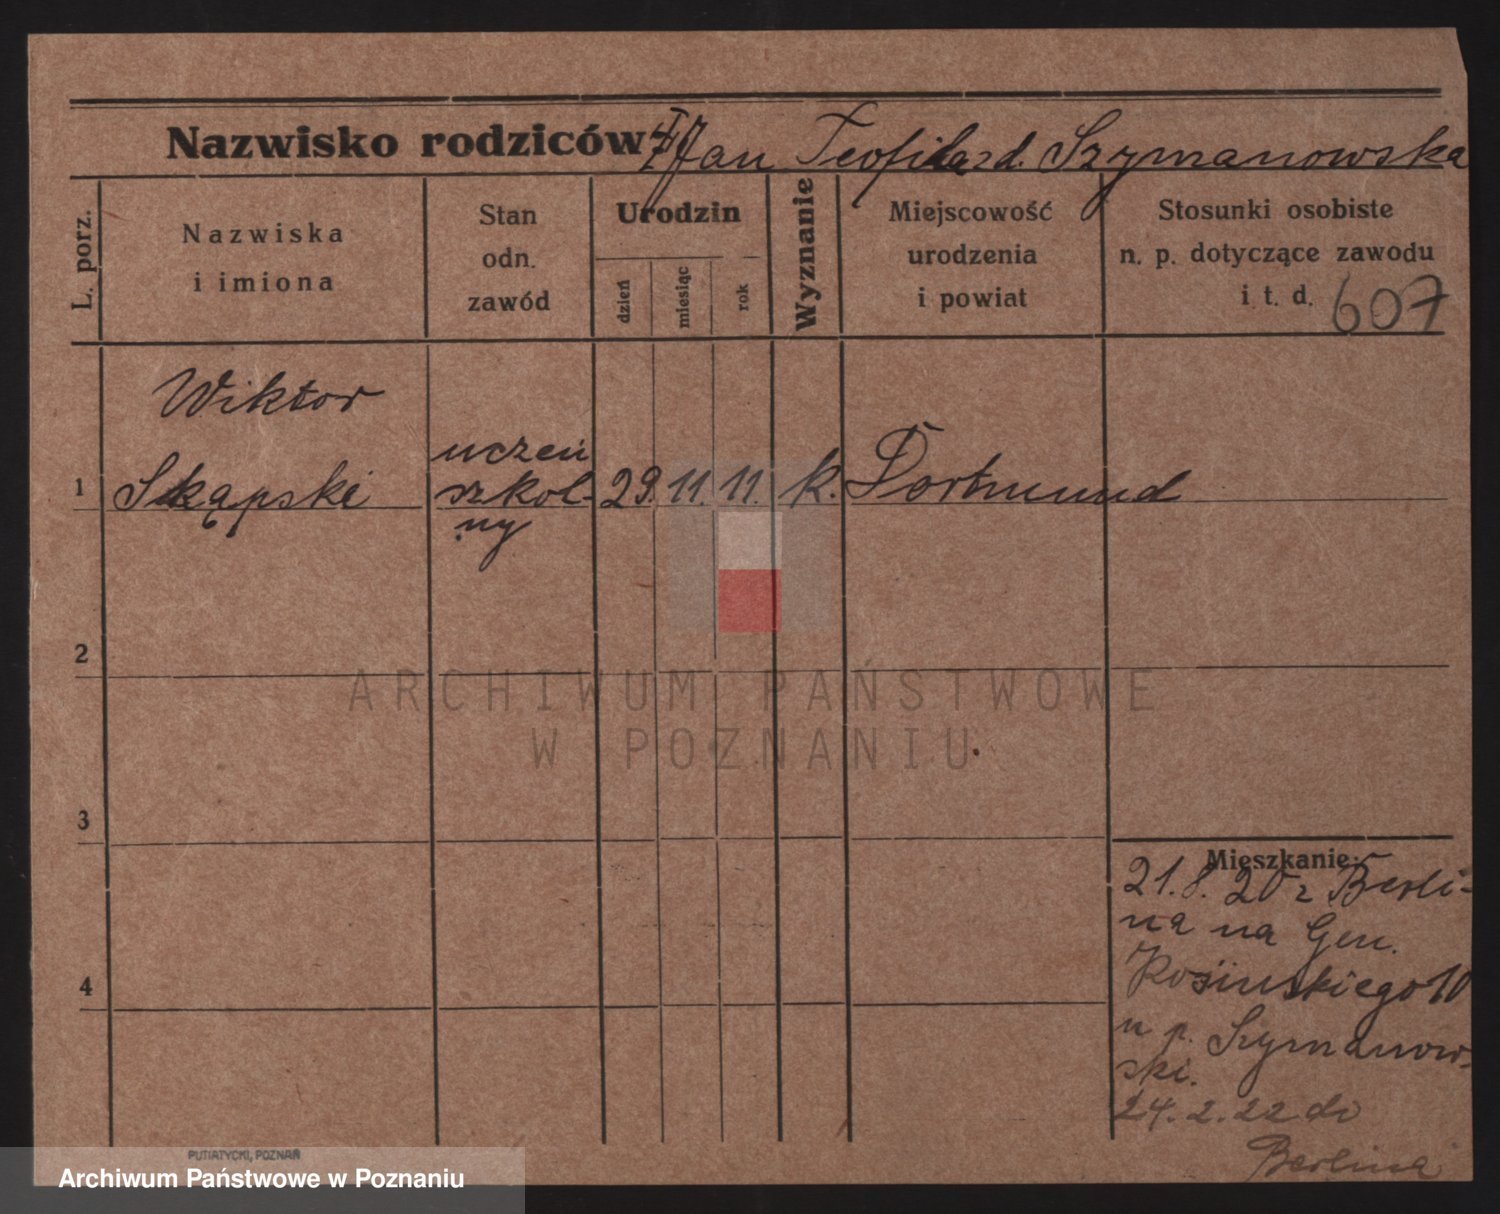 Nazwisko rodziców: Jan Teofila zd. Szymanowska
L. porz.
Nazwiska
i imiona
Stan
odn.
zawód
Urodzin
dzień
miesiąc
rok
Wyznanie
Miejscowość
urodzenia
i powiat
Stosunki osobiste
n. p. dotyczące zawodu
i t. d.
607
1
Wiktor
Skąpski
uczeń
szkol-
ny
29. 11. 11. k. Dortmund
2
3
4
Mieszkanie:
21.8.20 z Berli-
na na Gen.
Kosińskiego 10
u p. Szymanow-
ski.
24.2.22 do
Berlina
PUTIATYCKI, POZNAŃ
ARCHIWUM PAŃSTWOWE
W POZNANIU
Archiwum Państwowe w Poznaniu